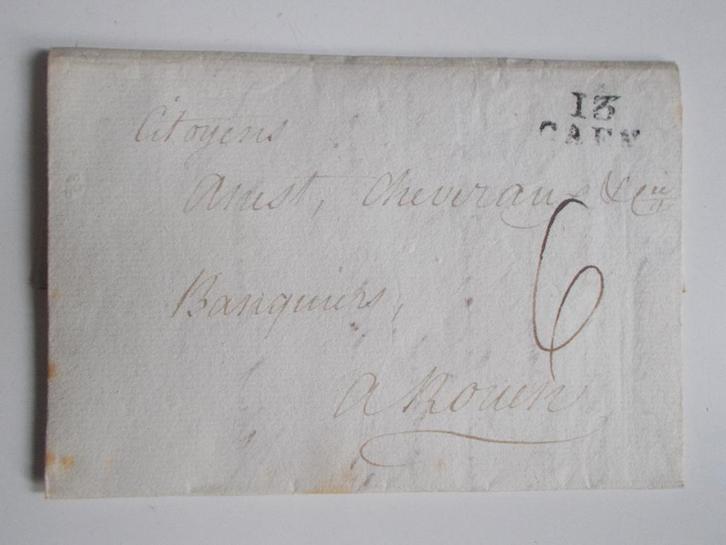 13
CAEN
Citoyens
Amst, Cheveraux & Cie
Banquiers,
A Rouen
6